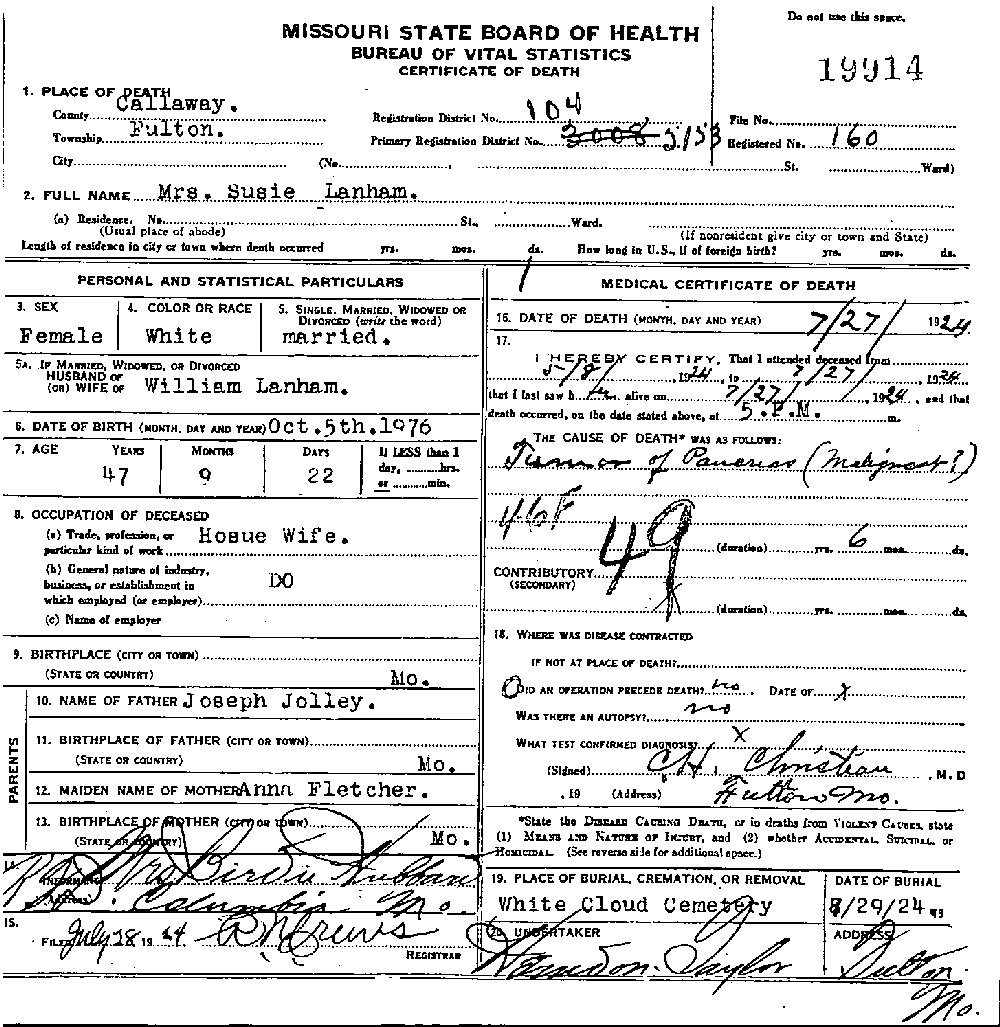 Do not use this space.
MISSOURI STATE BOARD OF HEALTH
BUREAU OF VITAL STATISTICS
CERTIFICATE OF DEATH
19914
1. PLACE OF DEATH
County Callaway.
Township Fulton.
City (No. St. Ward)
Registration District No. 104
Primary Registration District No. 3008 5153
File No.
Registered No. 160
2. FULL NAME Mrs. Susie Lanham.
(a) Residence. No. St., Ward.
(Usual place of abode) (If nonresident give city or town and State)
Length of residence in city or town where death occurred yrs. mos. ds. How long in U.S., if of foreign birth? yrs. mos. ds.
PERSONAL AND STATISTICAL PARTICULARS
3. SEX
Female
4. COLOR OR RACE
White
5. SINGLE, MARRIED, WIDOWED OR
DIVORCED (write the word)
married.
5A. IF MARRIED, WIDOWED, OR DIVORCED
HUSBAND OF
(OR) WIFE OF William Lanham.
6. DATE OF BIRTH (MONTH, DAY AND YEAR) Oct.5th.1976
7. AGE YEARS MONTHS DAYS If LESS than 1
day, hrs.
or min.
47 9 22
8. OCCUPATION OF DECEASED
(a) Trade, profession, or
particular kind of work Hosue Wife.
(b) General nature of industry,
business, or establishment in
which employed (or employer) DO
(c) Name of employer
9. BIRTHPLACE (CITY OR TOWN)
(STATE OR COUNTRY) Mo.
PARENTS
10. NAME OF FATHER Joseph Jolley.
11. BIRTHPLACE OF FATHER (CITY OR TOWN)
(STATE OR COUNTRY) Mo.
12. MAIDEN NAME OF MOTHER Anna Fletcher.
13. BIRTHPLACE OF MOTHER (CITY OR TOWN)
(STATE OR COUNTRY) Mo.
14.
INFORMANT Mrs Birdie Hubbard
Address Columbia Mo.
15.
FILED July 28 1924
REGISTRAR
MEDICAL CERTIFICATE OF DEATH
16. DATE OF DEATH (MONTH, DAY AND YEAR) 7/27/ 1924
17.
I HEREBY CERTIFY, That I attended deceased from
5/8/, 1924, to 7/27/, 1924
that I last saw her alive on 7/27/, 1924, and that
death occurred, on the date stated above, at 5.P.M. m.
THE CAUSE OF DEATH* WAS AS FOLLOWS:
Tumor of Pancreas (Malignant?)
46F
49
(duration) yrs. 6 mos. ds.
CONTRIBUTORY
(SECONDARY)
(duration) yrs. mos. ds.
18. WHERE WAS DISEASE CONTRACTED
IF NOT AT PLACE OF DEATH?
DID AN OPERATION PRECEDE DEATH? no DATE OF x
WAS THERE AN AUTOPSY? no
WHAT TEST CONFIRMED DIAGNOSIS? X
(Signed) C.H. Christian, M.D
, 19 (Address) Fulton Mo.
*State the DISEASE CAUSING DEATH, or in deaths from VIOLENT CAUSES, state
(1) MEANS AND NATURE OF INJURY, and (2) whether ACCIDENTAL, SUICIDAL, or
HOMICIDAL. (See reverse side for additional space.)
19. PLACE OF BURIAL, CREMATION, OR REMOVAL
White Cloud Cemetery
DATE OF BURIAL
7/29/24 19
20. UNDERTAKER
Herndon-Taylor
ADDRESS
Fulton
Mo.